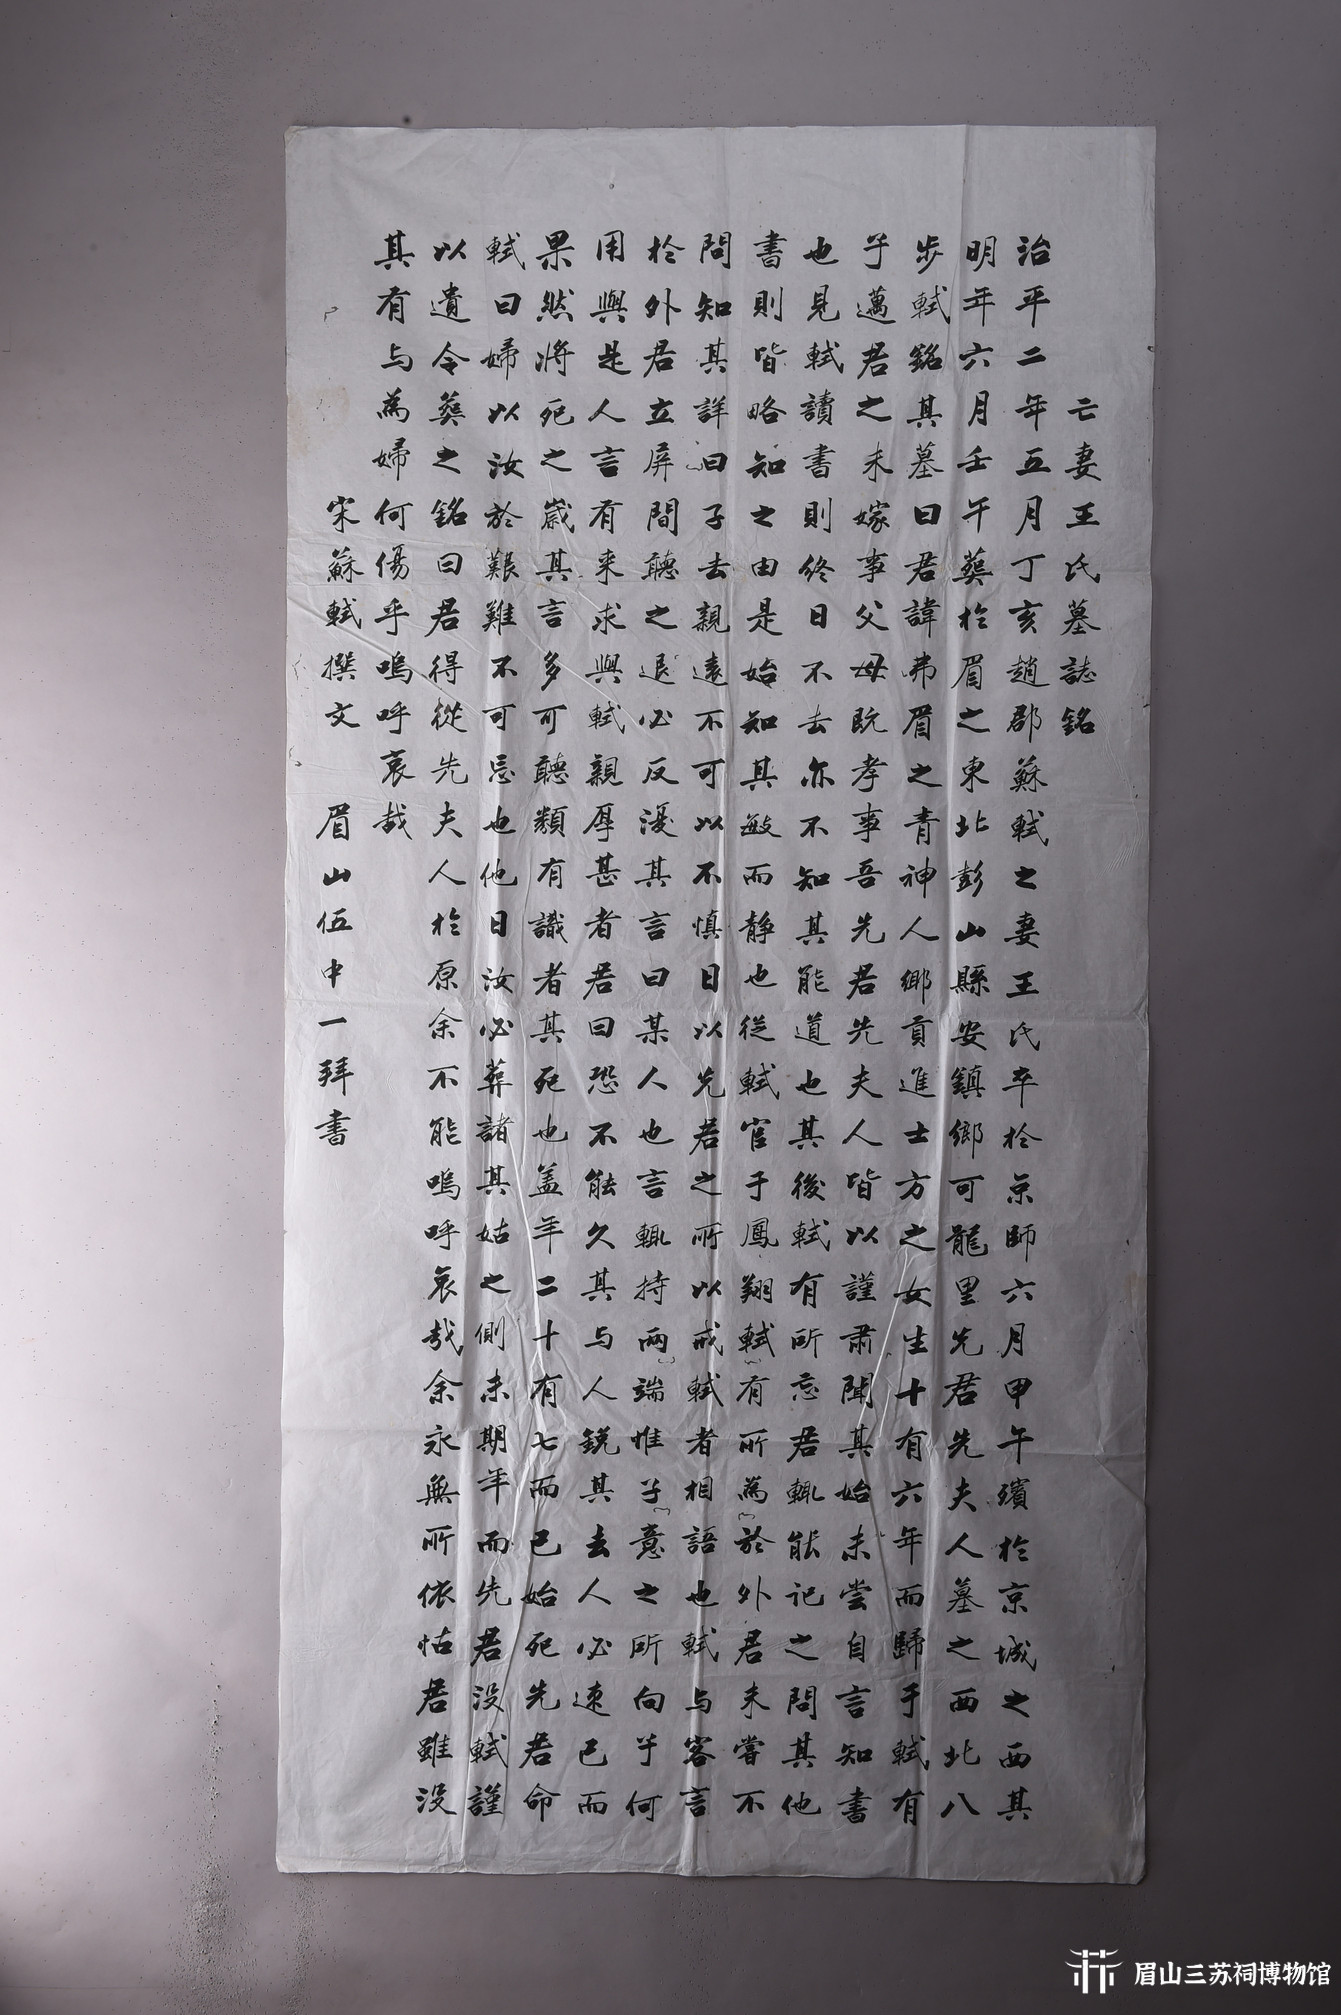 亡妻王氏墓誌銘
治平二年五月丁亥趙郡蘇軾之妻王氏卒於京師六月甲午殯於京城之西其
明年六月壬午葬於眉之東北彭山縣安鎮鄉可龍里先君先夫人墓之西北八
步軾銘其墓曰君諱弗眉之青神人鄉貢進士方之女生十有六年而歸于軾有
子邁君之未嫁事父母既孝事吾先君先夫人皆以謹肅聞其始未嘗自言知書
也見軾讀書則終日不去亦不知其能道也其後軾有所忘君輒能記之問其他
書則皆略知之由是始知其敏而静也從軾官于鳳翔軾有所為於外君未嘗不
問知其詳曰子去親遠不可以不慎日以先君之所以戒軾者相語也軾与客言
於外君立屏間聽之退必反濅其言曰某人也言輒持兩端惟子意之所向子何
用與是人言有来求與軾親厚甚者君曰恐不能久其与人銳其去人必速已而
果然將死之歲其言多可聽類有識者其死也盖年二十有七而已始死先君命
軾曰婦以汝於艱難不可忘也他日汝必葬諸其姑之側未期年而先君没軾謹
以遺令葬之銘曰君得從先夫人於原余不能嗚呼哀哉余永無所依怙君雖没
其有与為婦何傷乎嗚呼哀哉
宋蘇軾撰文 眉山伍中一拜書
眉山三苏祠博物馆